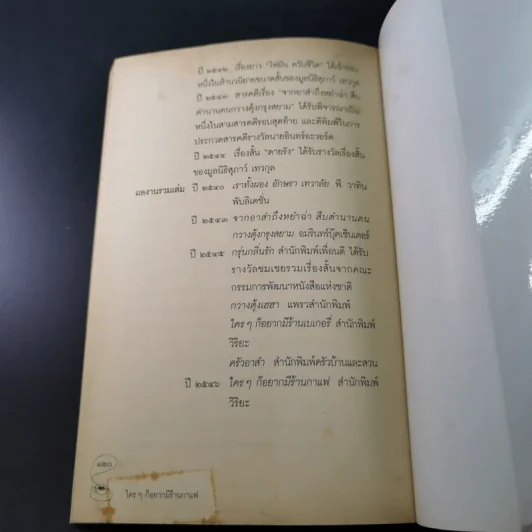 ปี ๒๕๔๒ เรื่องยาว "ไฟฝัน ควันชีวิต" ได้เข้ารอบ
หนึ่งในห้านวนิยายขนาดสั้นของมูลนิธิสุภาว์ เทวกุล
ปี ๒๕๔๓ สารคดีเรื่อง "จากอาสำถึงหย่ำฉ่า สืบ
ตำนานคนกวางตุ้งกรุงสยาม" ได้รับพิจารณาเป็น
หนึ่งในสามสารคดีรอบสุดท้าย และตีพิมพ์ในการ
ประกวดสารคดีรางวัลนายอินทร์อะวอร์ด
ปี ๒๕๔๔ เรื่องสั้น "ตายรัง" ได้รับรางวัลเรื่องสั้น
ของมูลนิธิสุภาว์ เทวกุล
ผลงานรวมเล่ม ปี ๒๕๔๐ เราทั้งผอง อักษรา เทวาลัย พี. วาทิน
พับลิเคชั่น
ปี ๒๕๔๓ จากอาสำถึงหย่ำฉ่า สืบตำนานคน
กวางตุ้งกรุงสยาม อมรินทร์บุ๊คเซ็นเตอร์
ปี ๒๕๔๕ กรุ่นกลิ่นรัก สำนักพิมพ์เพื่อนดี ได้รับ
รางวัลชมเชยรวมเรื่องสั้นจากคณะ
กรรมการพัฒนาหนังสือแห่งชาติ
กวางตุ้งเฮฮา แพรวสำนักพิมพ์
ใคร ๆ ก็อยากมีร้านเบเกอรี่ สำนักพิมพ์
วิริยะ
ครัวอาสำ สำนักพิมพ์ครัวบ้านและสวน
ปี ๒๕๔๖ ใคร ๆ ก็อยากมีร้านกาแฟ สำนักพิมพ์
วิริยะ
๑๒๐
ใคร ๆ ก็อยากมีร้านกาแฟ